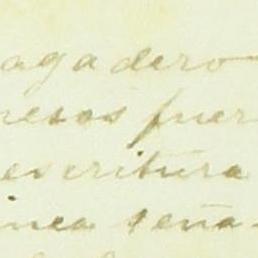 agadero
pesos fuer
escritura
inca seña-